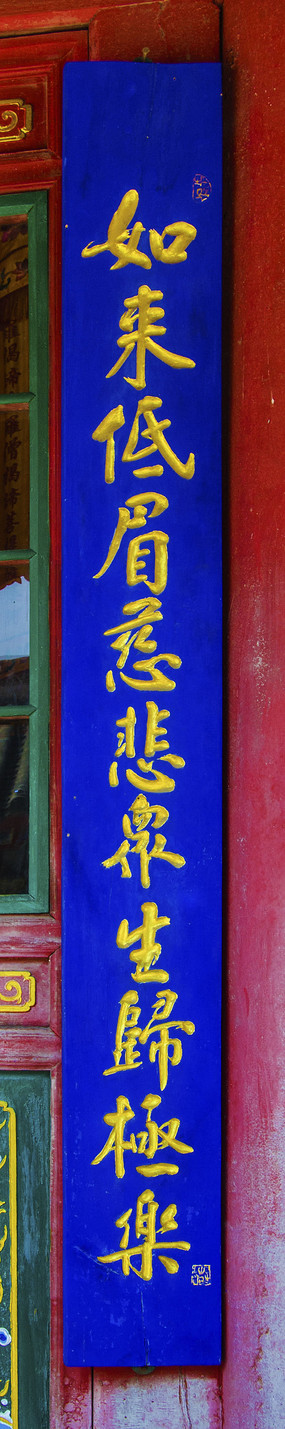 如来低眉慈悲眾生歸極樂